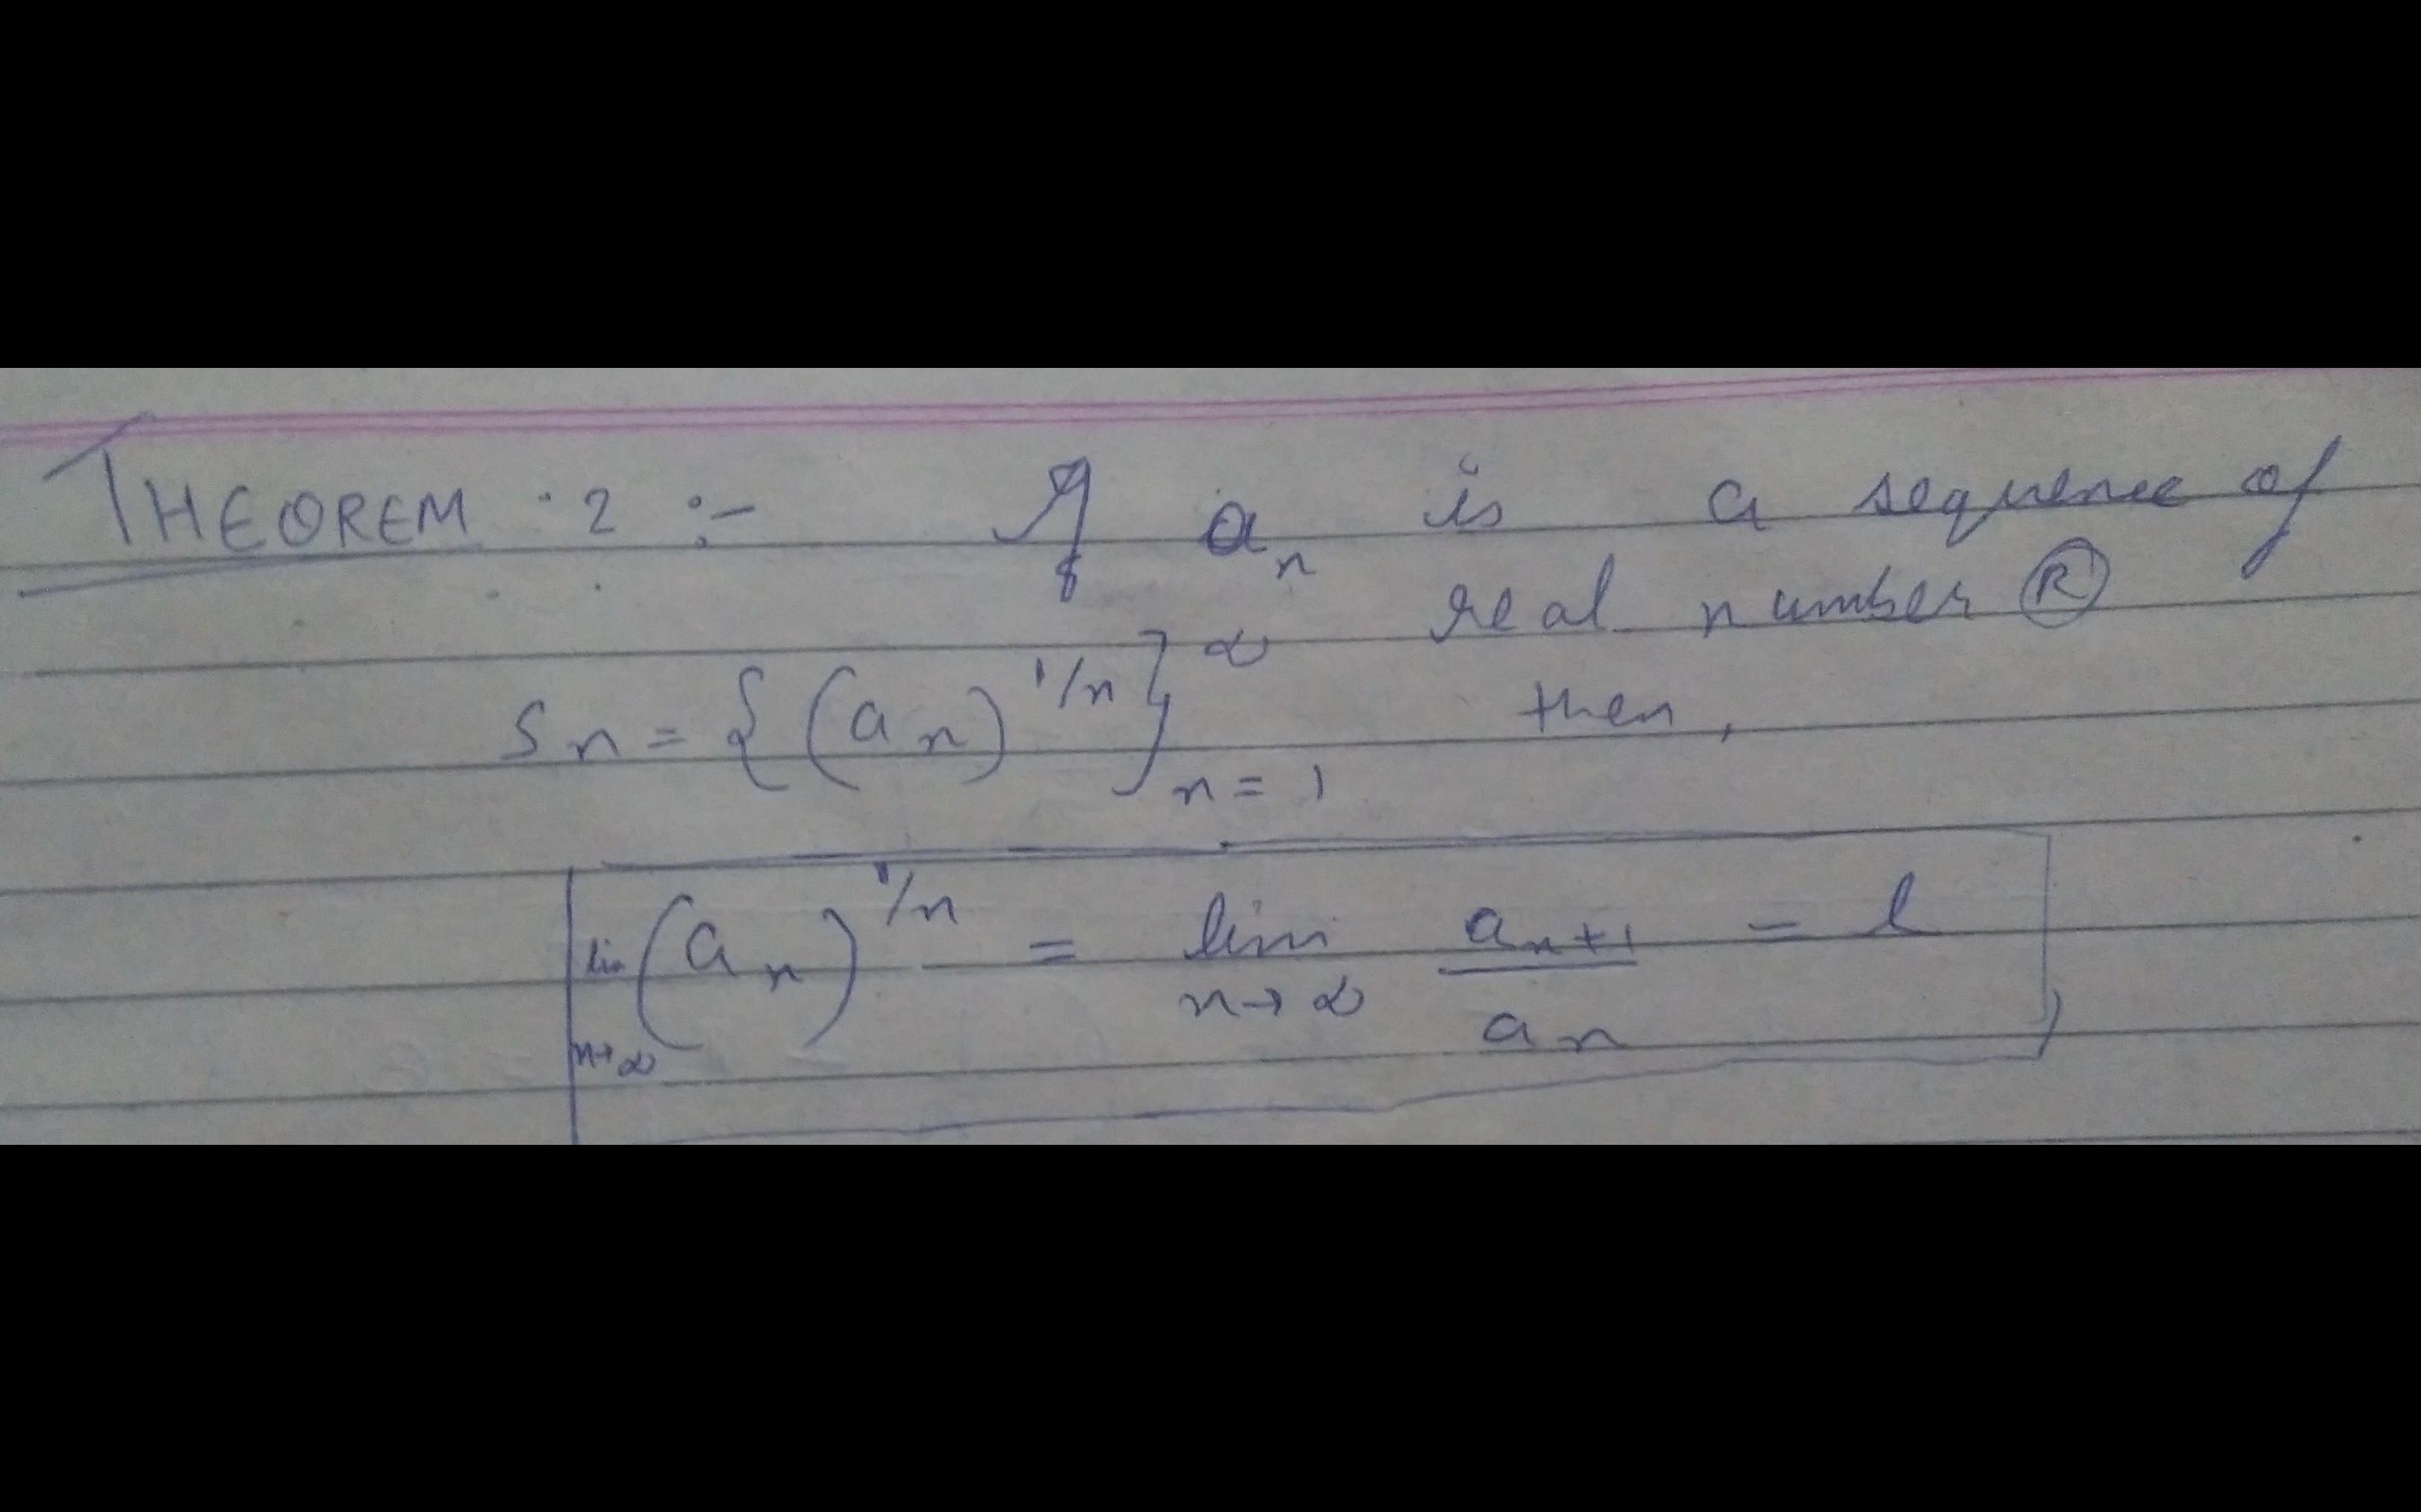 THEOREM .2 :- If aₙ is a sequence of
real number Ⓡ
Sₙ = { (aₙ)^1/n }^∞ ₙ₌₁ then,
lim n→∞ (aₙ)^1/n = lim n→∞ aₙ₊₁ / aₙ = l